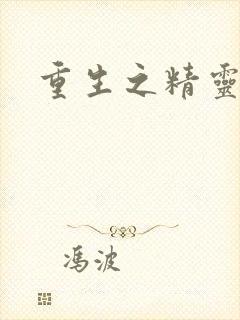 重生之精靈
馮波